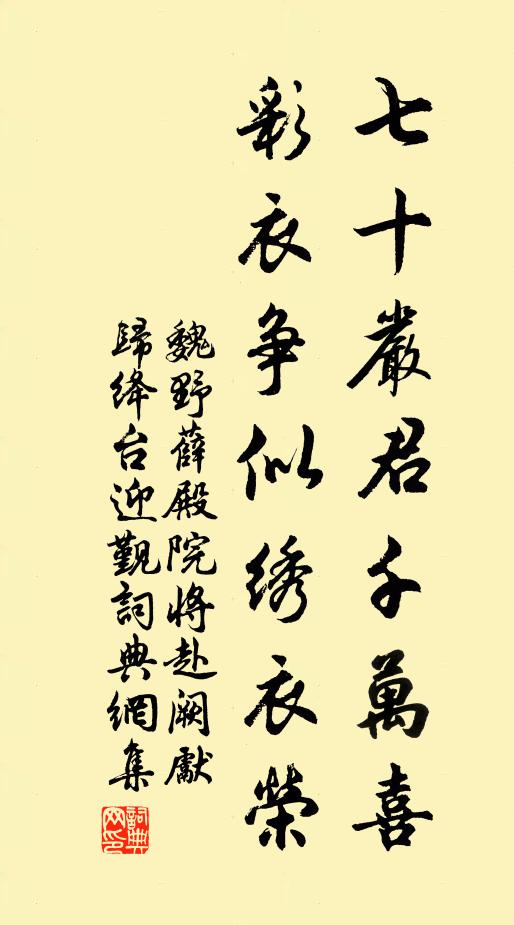 七十嚴君千萬喜
彩衣争似绣衣榮
魏野薛殿院將赴阙獻
歸绛台迎觐詞典網集
詞典
网印